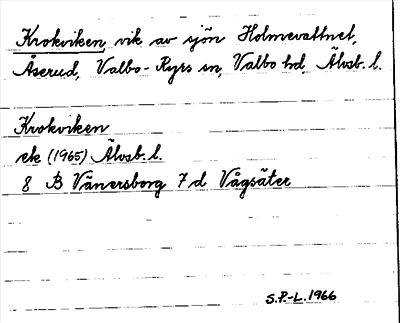 Krokviken, vik av sjön Holmevattnet,
Åserud, Valbo-Ryrs sn, Valbo hd, Älvsb. l.
Krokviken
ek (1965) Älvsb. l.
8 B Vänersborg 7d Vågsäter
S.P-L. 1966